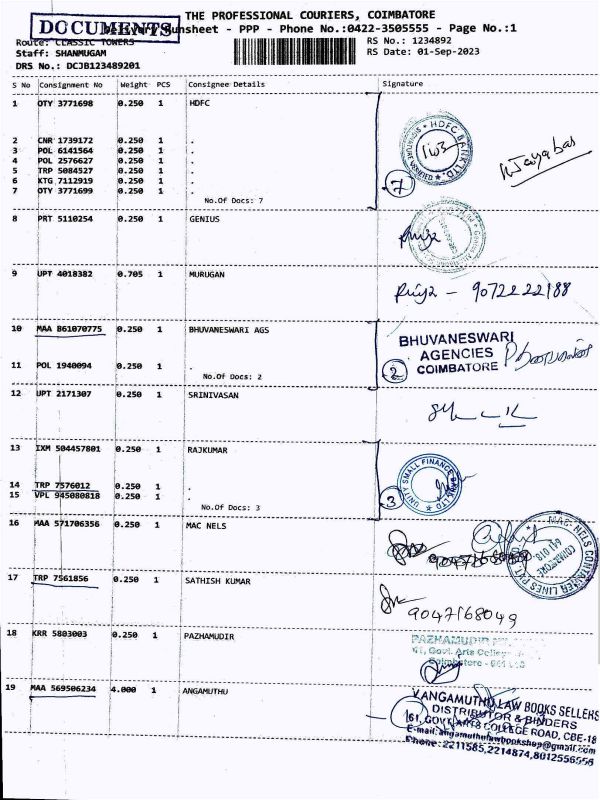 THE PROFESSIONAL COURIERS, COIMBATORE
DOCUMENTS
Delivery Runsheet - PPP - Phone No.:0422-3505555 - Page No.:1
Route: CLASSIC TOWERS
RS No.: 1234892
Staff: SHANMUGAM
RS Date: 01-Sep-2023
DRS No.: DCJB123489201
S No Consignment No Weight PCS Consignee Details Signature
1 OTY 3771698 0.250 1 HDFC
2 CNR 1739172 0.250 1 .
3 POL 6141564 0.250 1 .
4 POL 2576627 0.250 1 .
5 TRP 5084527 0.250 1 .
6 KTG 7112919 0.250 1 .
7 OTY 3771699 0.250 1 .
No.Of Docs: 7
HDFC BANK LTD.
SIGNATURE VERIFIED
7
8 PRT 5110254 0.250 1 GENIUS
Priya
9 UPT 4018382 0.705 1 MURUGAN
Priya - 9072222188
10 MAA 861070775 0.250 1 BHUVANESWARI AGS
11 POL 1940094 0.250 1 .
No.Of Docs: 2
BHUVANESWARI
AGENCIES
COIMBATORE
2
12 UPT 2171307 0.250 1 SRINIVASAN
13 IXM 504457801 0.250 1 RAJKUMAR
14 TRP 7576012 0.250 1 .
15 VPL 945080818 0.250 1 .
No.Of Docs: 3
UNITY SMALL FINANCE BANK LTD
3
16 MAA 571706356 0.250 1 MAC NELS
9047168049
MAC-NELS CONTAINER LINES PVT.
COIMBATORE
641 018
17 TRP 7561856 0.250 1 SATHISH KUMAR
9047168049
18 KRR 5803003 0.250 1 PAZHAMUDIR
PAZHAMUDIR
61, Govt. Arts College
Coimbatore - 641 018
19 MAA 569506234 4.000 1 ANGAMUTHU
ANGAMUTHU LAW BOOKS SELLERS
DISTRIBUTOR & BINDERS
161, GOVT. ARTS COLLEGE ROAD, CBE-18
E-mail: angamuthulawbookshop@gmail.com
Phone: 2211585, 2214874, 8012556556